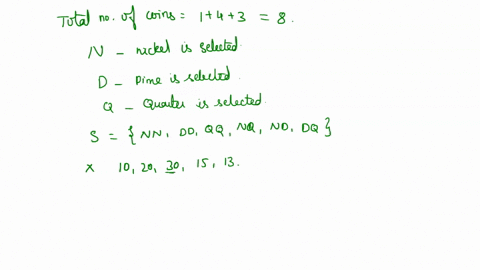 Total no. of coins = 1+4+3 = 8.
N – nickel is selected.
D – Dime is selected.
Q – Quarter is selected.
S = { NN, DD, QQ, NQ, ND, DQ }
X 10, 20, 30, 15, 13.